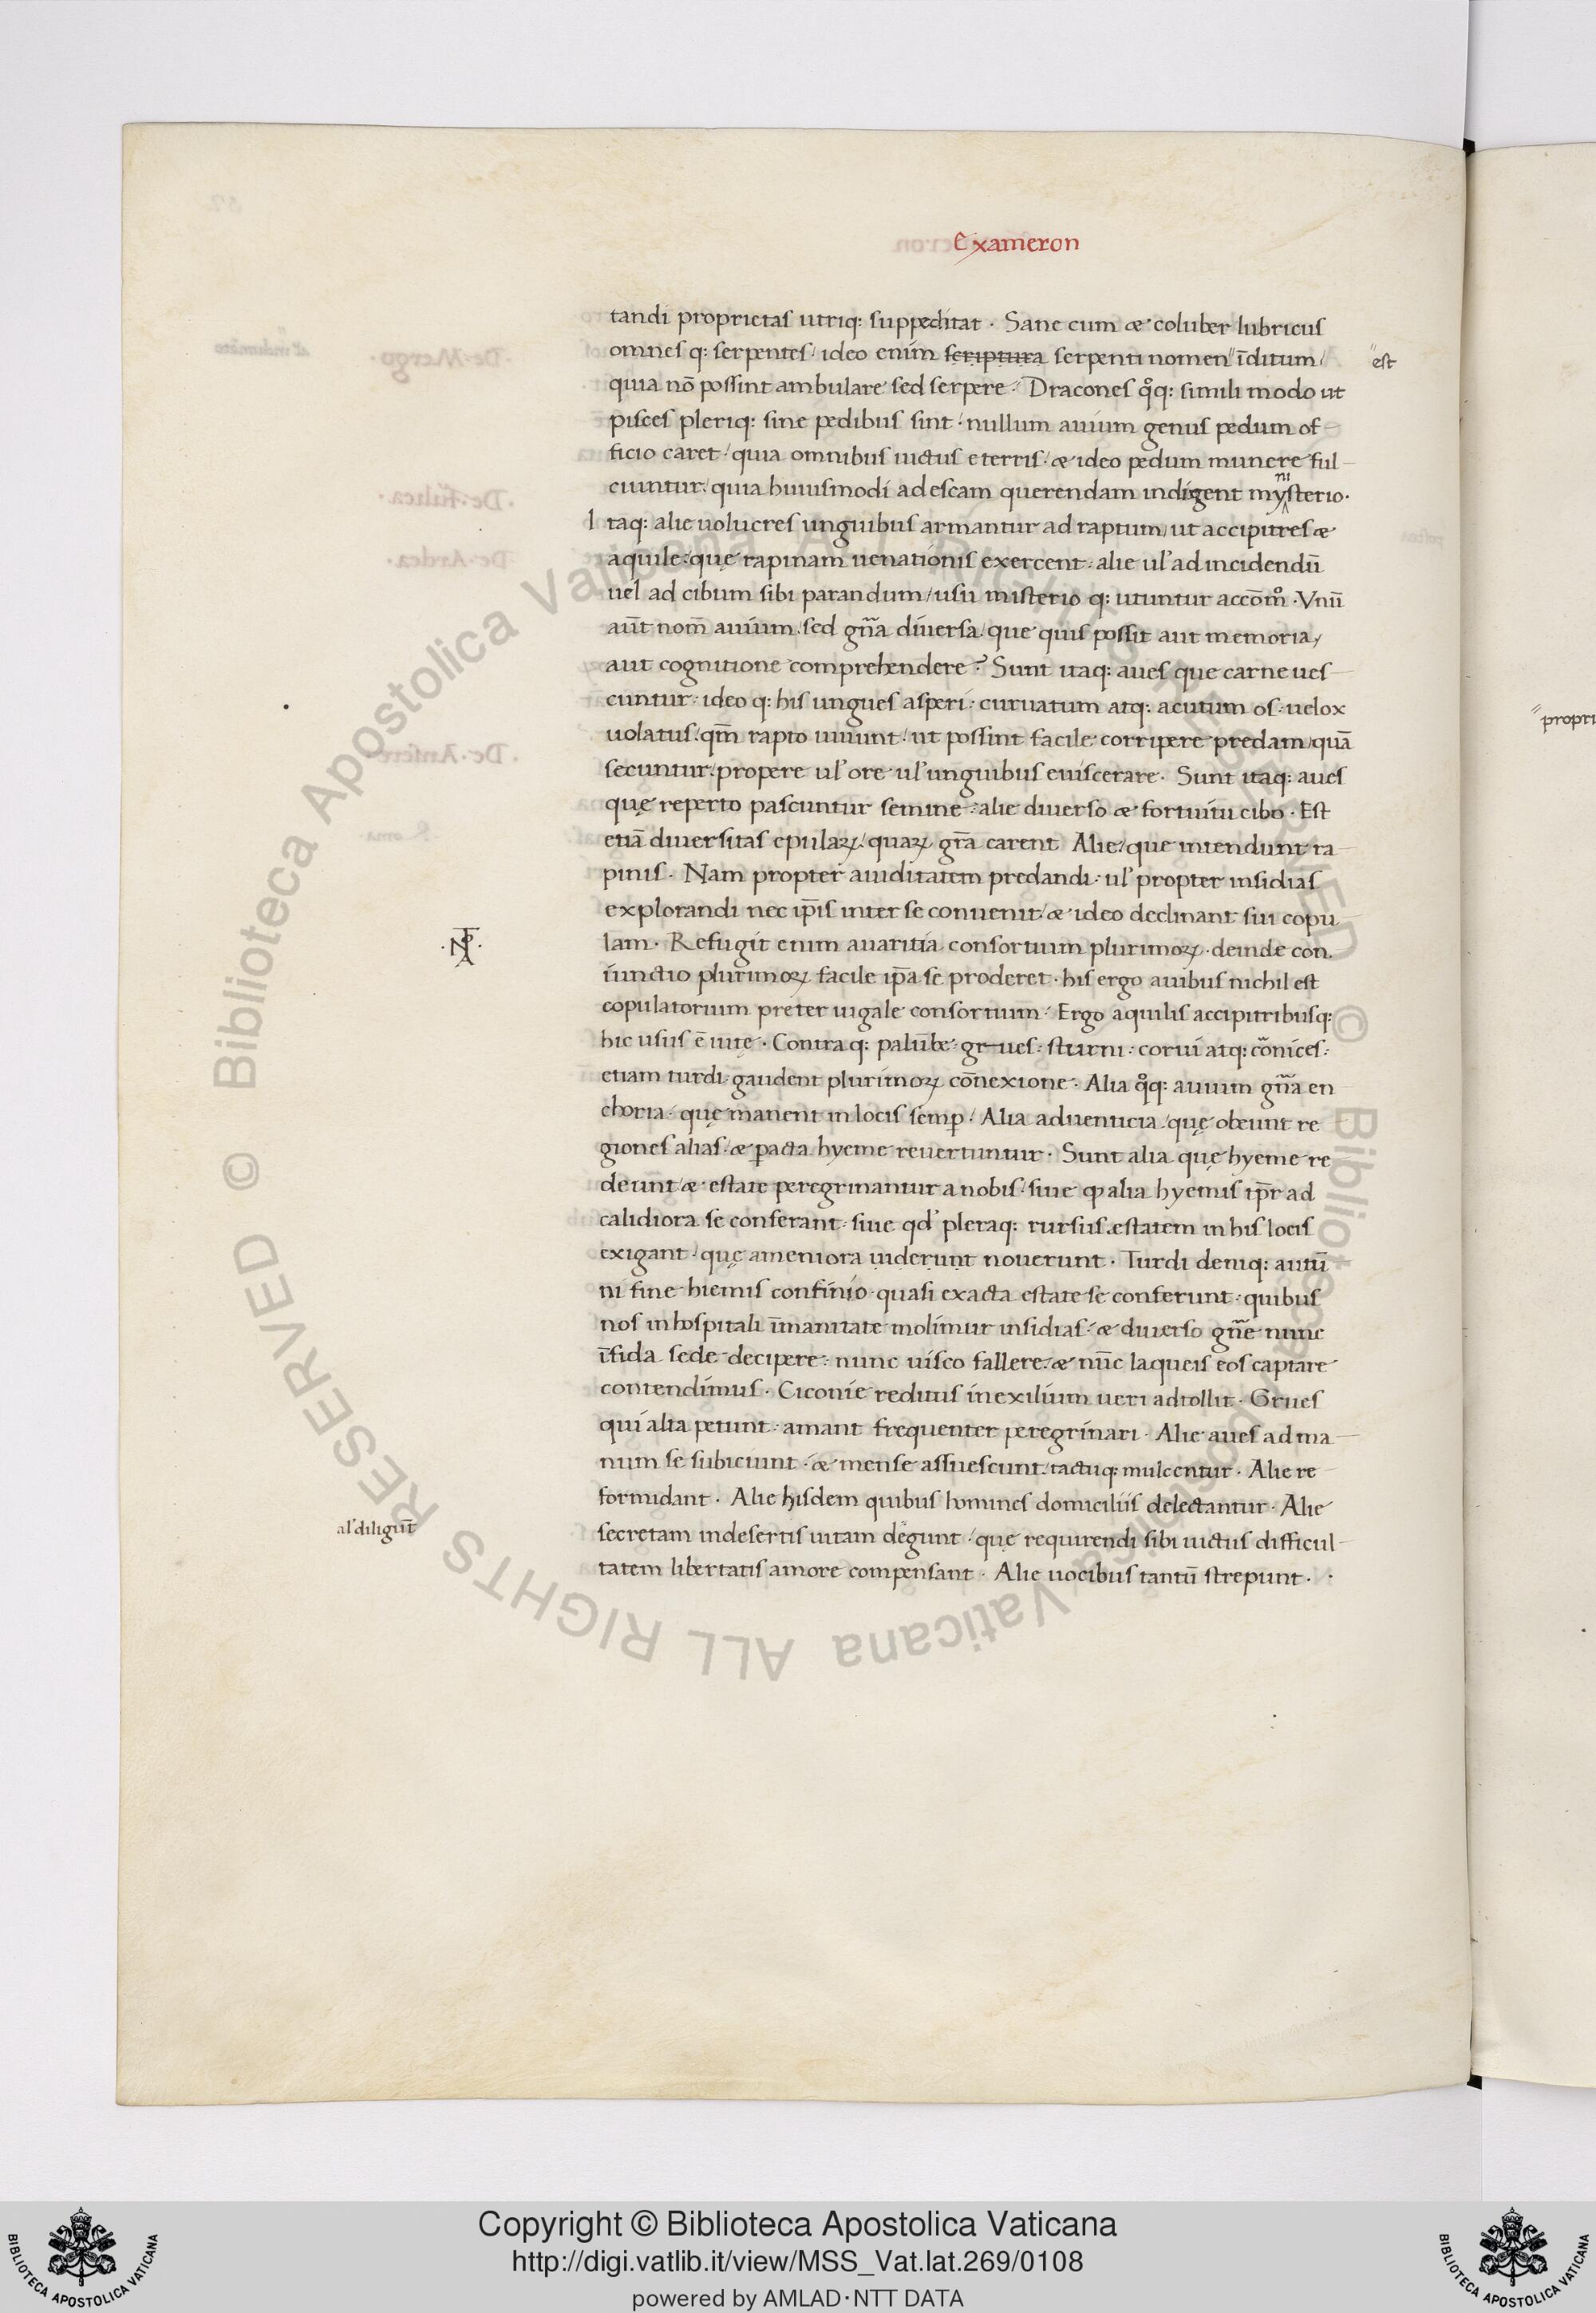 Exameron
tandi proprietas utriq: suppeditat · Sane cum æ coluber lubricus
omnes q: serpentes / ideo enim scriptura serpenti nomen " īditum /
" est
quia nō possint ambulare sed serpere · Dracones qͦq: simili modo ut
pisces pleriq: sine pedibus sint · nullum avium genus pedum of-
ficio caret / quia omnibus uictus e terris / æ ideo pedum munere ful-
ciuntur / quia huiusmodi ad escam querendam indigent mysterio ·
ni
I taq: alie uolucres unguibus armantur ad raptum / ut accipitres æ
aquile : quę rapinam uenationis exercent : alie ul' ad incidendū
uel ad cibum sibi parandum / usu misterio q: utuntur accōmͦ · Vnū
aūt nom̄ avium / sed gn̄a diversa / que quis possit aut memoria /
aut cognitione comprehendere ? Sunt itaq: aues que carne ues-
cuntur · ideo q: his ungues asperi : curuatum atq: acutum os : uelox
uolatus / qm̄ rapto uiuunt / ut possint facile corripere predam / quā
secuntur / propere ul' ore ul' unguibus euiscerare · Sunt itaq: aues
quę reperto pascuntur semine : alie diuerso æ fortuitu cibo · Est
etiā diuersitas epulaꝝ / quaꝝ gr̄a carent Alie / que intendunt ra-
pinis · Nam propter auiditatem predandi · ul' propter insidias
explorandi nec ip̄is inter se conuenit / æ ideo declinant sui copu-
lam · Refugit enim auaritia consortium plurimoꝝ · deinde con
iunctio plurimoꝝ facile ip̄a se proderet · his ergo avibus nichil est
copulatorium preter uigale consortium · Ergo aquilis accipitribusq:
hic usus ē uitę · Contra q: palūbe : grues : sturni : corui atq: cōnices :
etiam turdi · gaudent plurimoꝝ cōnexione · Alia qͦq: avium gn̄a en
choria · quę manent in locis semp̄ · Alia aduenticia / quę obeunt re
giones alias / æ ꝑacta hyeme reuertuntur · Sunt alia quę hyeme re
deunt / æ estate peregrinantur a nobis / siue ꝙ alia hyemis ip̄r ad
calidiora se conferant · siue qd' pleraq: rursus estatem in his locis
exigant · quę ameniora uiderunt nouerunt · Turdi deniq: autū
ni fine hiemis confinio · quasi exacta estate se conferunt · quibus
nos inhospitali īmanitate molimur insidias · æ diuerso gn̄e nunc
īfida sede decipere : nunc uisco fallere / æ nūc laqueis eos captare
contendimus · Ciconie reditus in exilium ueri adtollit · Grues
qui alta petunt · amant frequenter peregrinari · Alie aues ad ma-
num se subiciunt · æ mense assuescunt / tactuq: mulcentur · Alie re
formidant · Alie hisdem quibus homines domiciliis delectantur · Alie
al' diligūt
secretam in desertis uitam degunt / quę requirendi sibi uictus difficul-
tatem libertatis amore compensant · Alie uocibus tantū strepunt ·
Copyright © Biblioteca Apostolica Vaticana
http://digi.vatlib.it/view/MSS_Vat.lat.269/0108
powered by AMLAD·NTT DATA
BIBLIOTECA APOSTOLICA VATICANA
BIBLIOTECA APOSTOLICA VATICANA
© Biblioteca Apostolica Vaticana ALL RIGHTS RESERVED
© Biblioteca Apostolica Vaticana ALL RIGHTS RESERVED